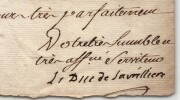 très parfaitement
Votre très humble et
très aff.né Serviteur
Le Duc de Lavrilliere